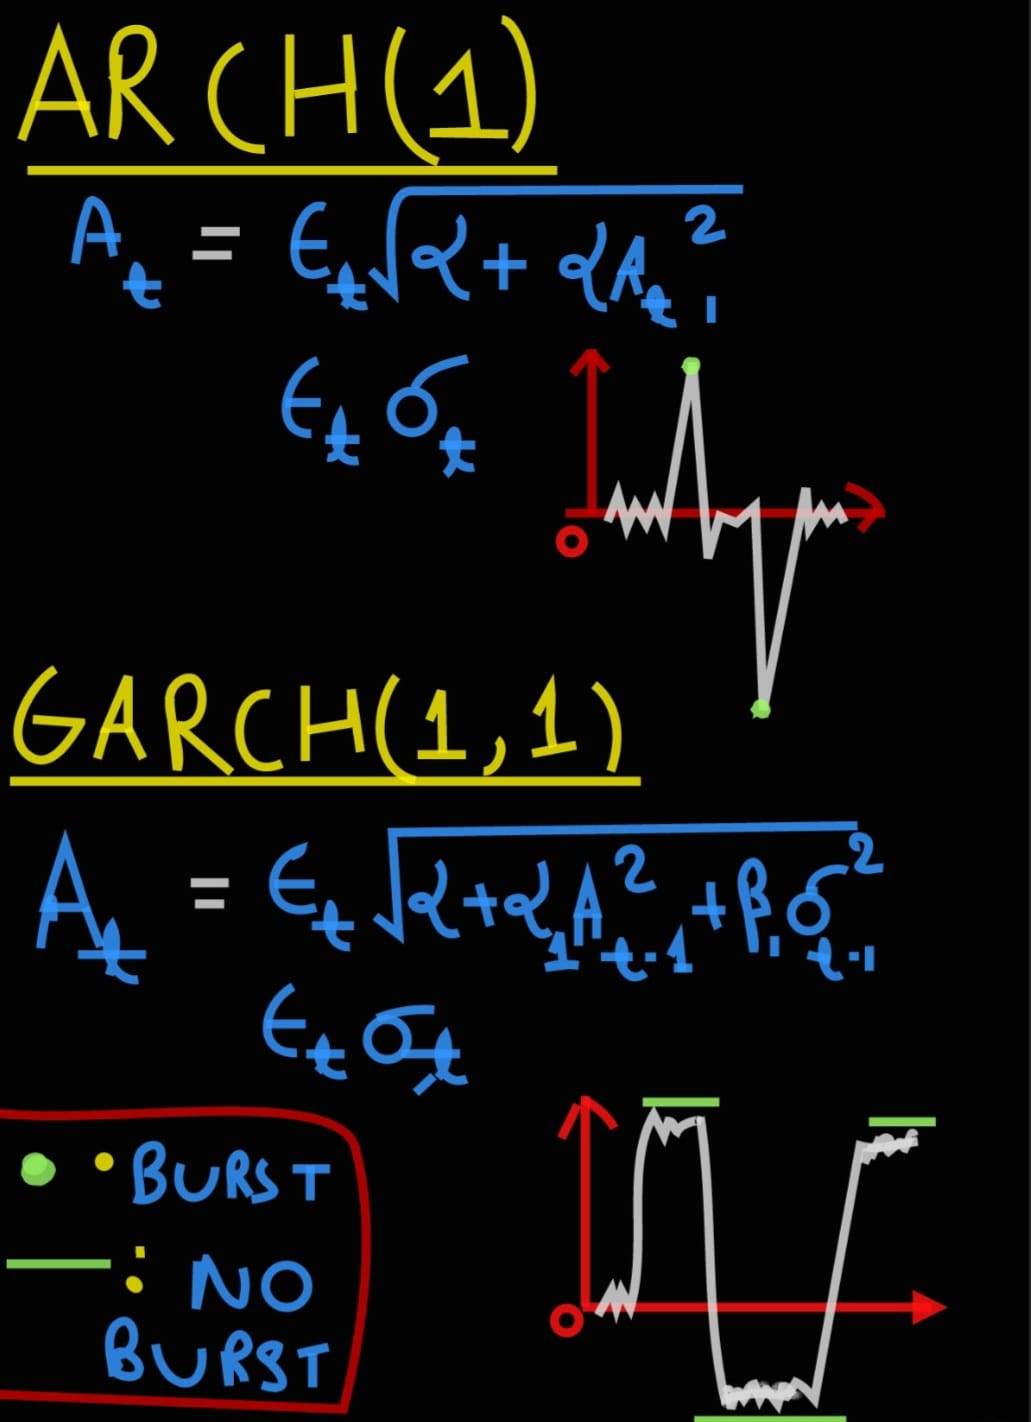 ARCH(1)
A_t = ϵ_t √(α + αA_t-1²)
ϵ_t σ_t
O
GARCH(1,1)
A_t = ϵ_t √(α + α_1 A²_t-1 + β_1 σ²_t-1)
ϵ_t σ_t
: BURST
: NO
BURST
O